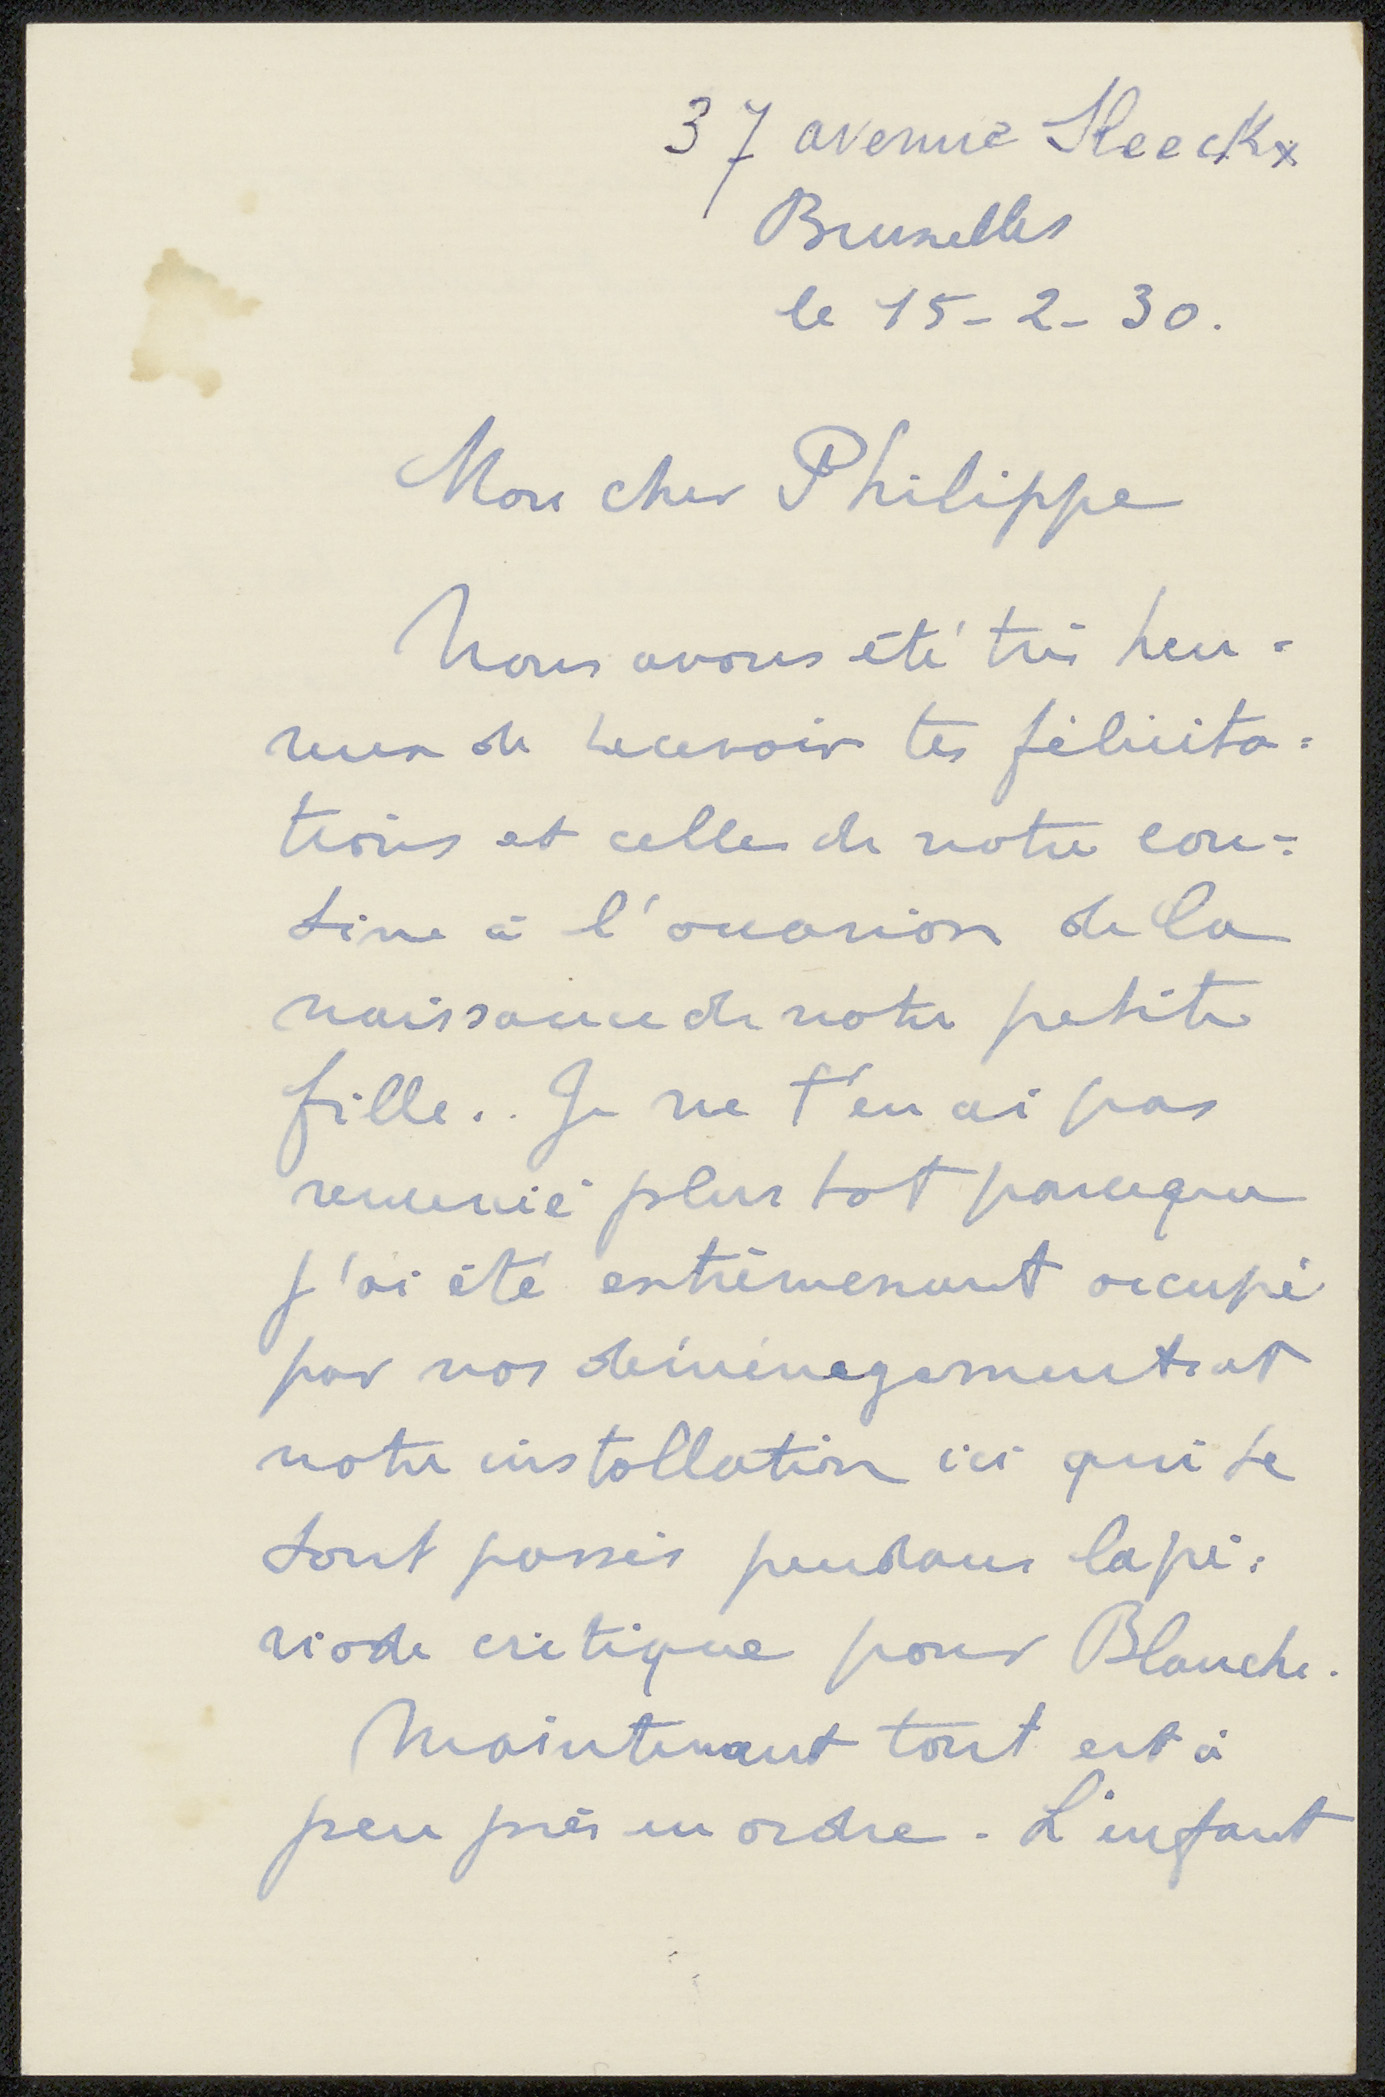 37 avenue Sleeckx
Bruxelles
le 15-2-30.
Mon cher Philippe
Nous avons été très heu=
reux de recevoir tes félicita=
tions et celles de notre cou=
sine à l'occasion de la
naissance de notre petite
fille.. Je ne t'en ai pas
remercié plus tot parceque
j'ai été extrêmement occupé
par nos déménagements et
notre installation ici qui se
sont passés pendant la pé=
riode critique pour Blanche.
Maintenant tout est à
peu près en ordre. L'enfant